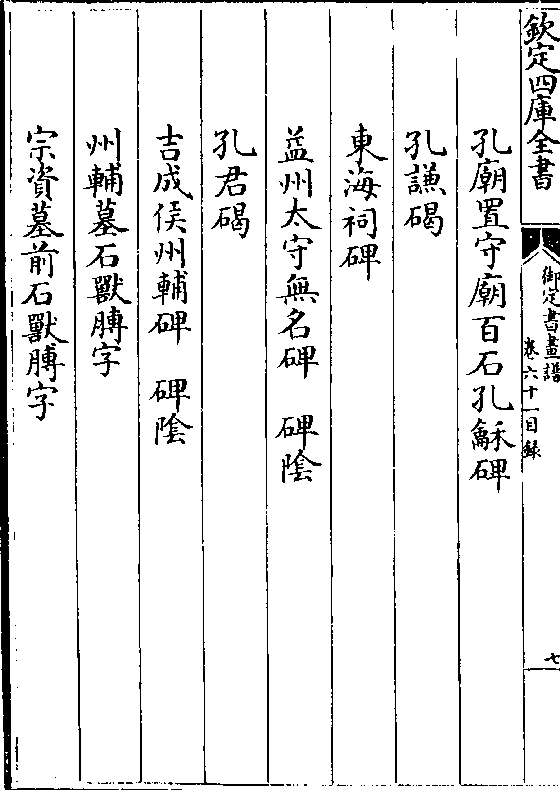 欽定四庫全書
御定書畫譜
卷六十一目録
七
孔廟置守廟百石孔龢碑
孔謙碣
東海祠碑
益州太守無名碑　碑陰
孔君碣
吉成侯州輔碑　碑陰
州輔墓石獸膊字
宗資墓前石獸膊字